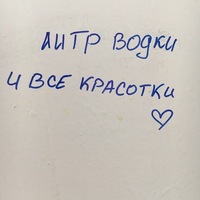 ЛИТР ВОДКИ
И ВСЕ КРАСОТКИ
♡